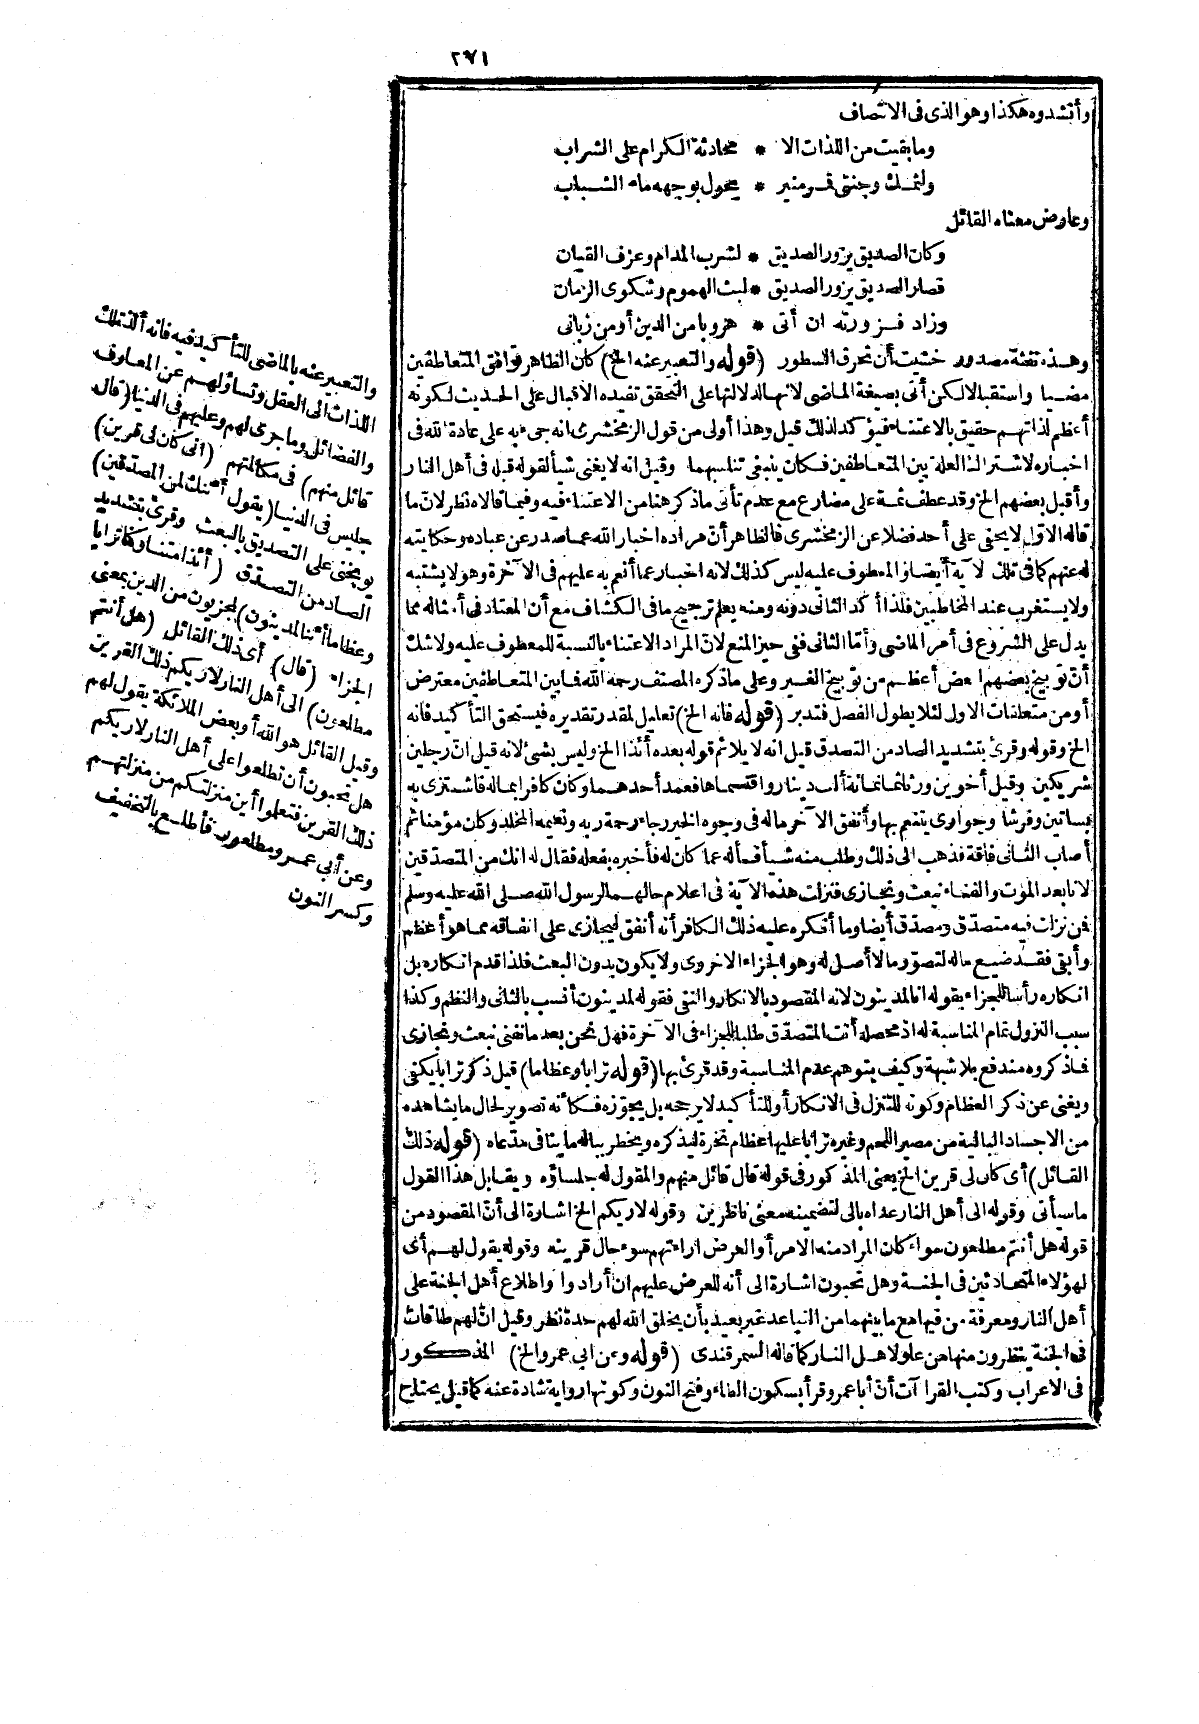 ٢٧١
وأنشدوه هكذا وهو الذى فى الانتصاف
وما بقيت من اللذات الا * محادثة الكرام على الشراب
ولثمك وجنتى قمر منير * يجول بوجهه ماء الشباب
وعارض معناه القائل
وكان الصديق يزور الصديق * لشرب المدام وعزف القيان
فصار الصديق يزور الصديق * لبث الهموم وشكوى الزمان
وزاد فزورته ان أتى * هروبا من الدين أو من زبانى
وهذه نفثة مصدور خشيت أن تحرق السطور (قوله والتعبير عنه الخ) كان الظاهر توافق المتعاطفين
مضيا واستقبالا لكن أتى بصيغة الماضى لانها لدلالتها على التحقق تفيده الاقبال على الحديث لكونه
أعظم لذاتهم حقيق بالاعتناء فيؤكد لذلك قيل وهذا أولى من قول الزمخشرى انه جىء به على عادة الله فى
اخباره لاشتراك العلة بين المتعاطفين فكان ينبغى تناسبهما وقيل انه لا يغنى شيأ لقوله قبله فى أهل النار
وأقبل بعضهم الخ وقد عطف ثمة على مضارع مع عدم تأتى ما ذكر هنا من الاعتناء فيه وفيما قالاه نظر لان ما
قاله الاول لا يخفى على أحد فضلا عن الزمخشرى فالظاهر أن مراده اخبار الله عما صدر عن عباده وحكايته
له عنهم كما فى تلك الآية أيضا والمعطوف عليه ليس كذلك لانه اخبار عما أنعم به عليهم فى الآخرة وهو لا يشتبه
ولا يستغرب عند المخاطبين فلذا أكد الثانى دونه ومنه يعلم ترجيح ما فى الكشاف مع أن المعتاد فى أمثاله مما
يدل على الشروع فى أمر الماضى وأما الثانى ففى حيز المنع لان المراد الاعتناء بالنسبة للمعطوف عليه ولا شك
أن توبيخ بعضهم لبعض أعظم من توبيخ الغير وعلى ما ذكره المصنف رحمه الله فما بين المتعاطفين معترض
أو من متعلقات الاول لئلا يطول الفصل فتدبر (قوله فانه الخ) تعليل لمقدر تقديره فيستحق التأكيد فانه
الخ وقوله وقرئ بتشديد الصاد من التصدق قيل انه لا يلائم قوله بعده أئذا الخ وليس بشئ لانه قيل ان رجلين
شريكين وقيل أخوين ورثا ثمانية آلاف دينار واقتسماها فعمد أحدهما وكان كافرا بماله فاشترى به
بساتين وفرشا وجوارى يتنعم بها وأنفق الآخر ماله فى وجوه الخير رجاء رحمة ربه ونعيمه المخلد وكان مؤمنا ثم
أصاب الثانى فاقة فذهب الى ذلك وطلب منه شيأ فسأله عما كان له فأخبره بفعله فقال له انك من المتصدقين
لانا بعد الموت والفناء نبعث ونجازى فنزلت هذه الآية فى اعلام حالهما لرسول الله صلى الله عليه وسلم
فمن نزلت فيه متصدق ومصدق أيضا وما أنكره عليه ذلك الكافر أنه أنفق ليجازى على انفاقه مما هو أعظم
وأبقى فقد ضيع ماله لتصور ما لا أصل له وهو الجزاء الاخروى ولا يكون بدون البعث فلذا قدم انكاره بل
انكاره رأسا للجزاء بقوله انا لمدينون لانه المقصود بالانكار والنفى فقوله لمدينون أنسب بالثانى والنظم وكذا
سبب النزول تمام المناسبة له اذ محصله أنت المتصدق طلبا للجزاء فى الآخرة فهل نحن بعد ما نفنى نبعث ونجازى
فما ذكروه مندفع بلا شبهة وكيف يتوهم عدم المناسبة وقد قرئ بها (قوله ترابا وعظاما) قيل ذكر ترابا يكفى
ويغنى عن ذكر العظام وكونه للتنزل فى الانكار أو للتأكيد لا يرجحه بل يجوزه فكأنه تصوير لحال ما يشاهده
من الاجساد البالية من مصير اللحم وغيره ترابا عليها عظام نخرة ليذكره ويخطر بباله ما ينافى مدعاه (قوله ذلك
القائل) أى كان لى قرين الخ يعنى المذكور فى قوله قال قائل منهم والمقول له جلساؤه ويقابل هذا القول
ما سيأتى وقوله الى أهل النار عداه بالى لتضمينه معنى ناظرين وقوله لاريكم الخ اشارة الى أن المقصود من
قوله هل أنتم مطلعون سواء كان المراد منه الامر أو العرض اراءتهم سوء حال قرينه وقوله يقول لهم أى
لهؤلاء المتحادثين فى الجنة وهل تحبون اشارة الى أنه للعرض عليهم ان أرادوا واطلاع أهل الجنة على
أهل النار ومعرفة من فيها مع ما بينهما من التباعد غير بعيد بأن يخلق الله لهم حدة نظر وقيل ان لهم طاقات
فى الجنة ينظرون منها من علو لاهل النار كما قاله السمرقندى (قوله وعن أبى عمرو الخ) المذكور
فى الاعراب وكتب القراآت أن أبا عمرو قرأ بسكون الطاء وفتح النون وكونها رواية شاذة عنه كما قيل يحتاج
والتعبير عنه بالماضى للتأكيد فيه فانه ألذ تلك
اللذات الى العقل وتساؤلهم عن المعارف
والفضائل وما جرى لهم وعليهم فى الدنيا (قال
قائل منهم) فى مكالمتهم (انى كان لى قرين)
جليس فى الدنيا (يقول أئنك لمن المصدقين)
يوبخنى على التصديق بالبعث وقرئ بتشديد
الصاد من التصدق (أئذا متنا وكنا ترابا
وعظاما أئنا لمدينون) لمجزيون من الدين بمعنى
الجزاء (قال) أى ذلك القائل (هل أنتم
مطلعون) الى أهل النار لاريكم ذلك القرين
وقيل القائل هو الله أو بعض الملائكة يقول لهم
هل تحبون أن تطلعوا على أهل النار لاريكم
ذلك القرين فتعلموا أين منزلتكم من منزلتهم
وعن أبى عمرو مطلعون فأطلع بالتخفيف
وكسر النون